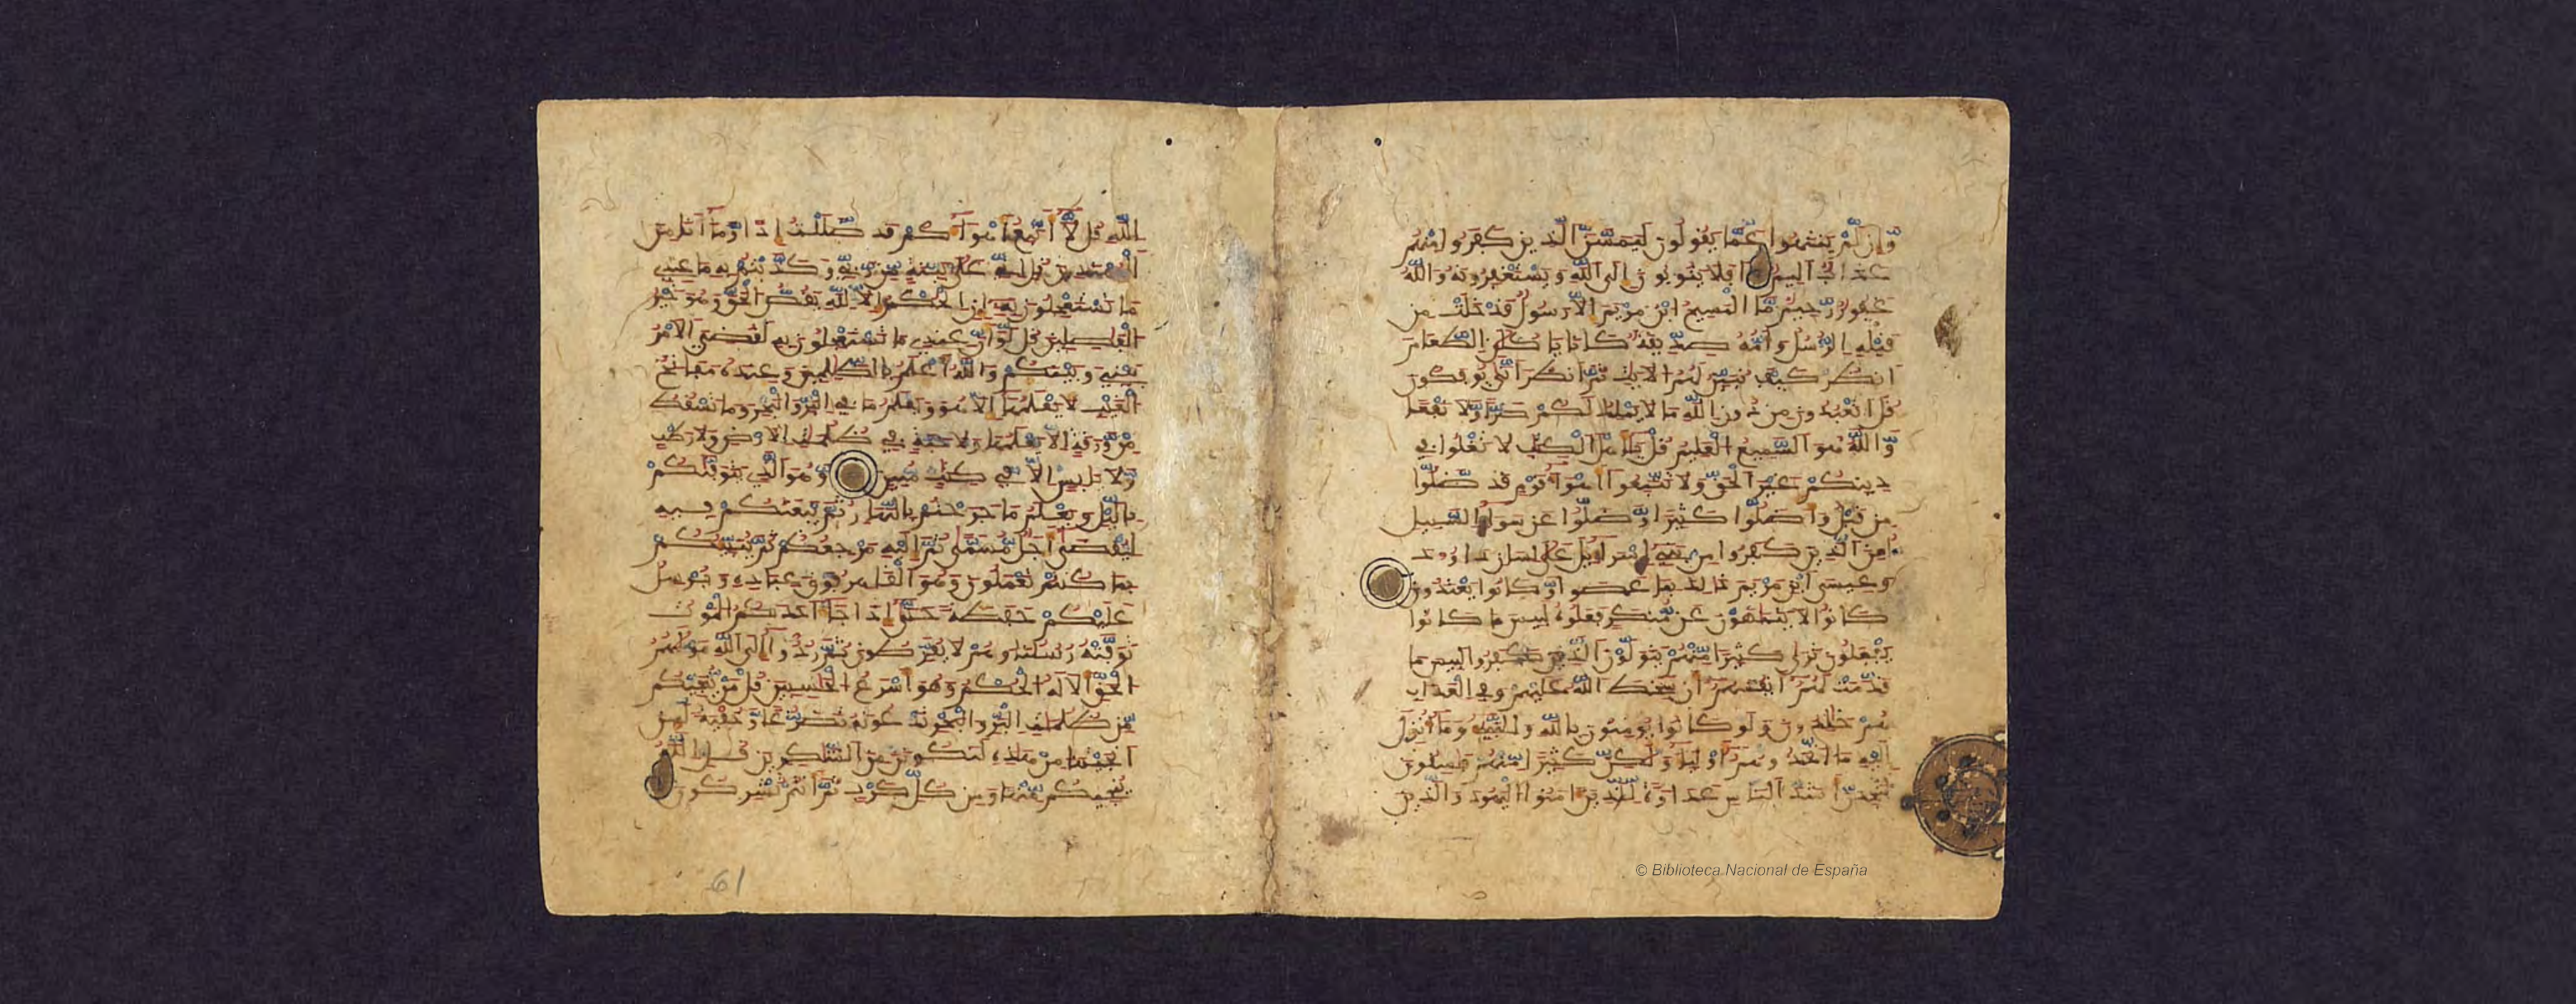 وإن لم ينتهوا عما يقولون ليمسن الذين كفروا منهم
عذاب اليم افلا يتوبون الى الله ويستغفرونه والله
غفور رحيم ما المسيح ابن مريم الا رسول قد خلت من
قبله الرسل وامه صديقة كانا ياكلن الطعام
انظر كيف نبين لهم الايت ثم انظر انى يوفكون
قل اتعبدون من دون الله ما لا يملك لكم ضرا ولا نفعا
والله هو السميع العليم قل ياهل الكتب لا تغلوا في
دينكم غير الحق ولا تتبعوا اهوا قوم قد ضلوا
من قبل واضلوا كثيرا وضلوا عن سوا السبيل
لعن الذين كفروا من بني اسرايل على لسان داود
وعيسى ابن مريم ذلك بما عصوا وكانوا يعتدون
كانوا لا يتناهون عن منكر فعلوه لبيس ما كانوا
يفعلون ترى كثيرا منهم يتولون الذين كفروا لبيس ما
قدمت لهم انفسهم ان سخط الله عليهم وفي العذاب
هم خلدون ولو كانوا يومنون بالله والنبي وما انزل
اليه ما اتخذوهم اوليا ولكن كثيرا منهم فسقون
لتجدن اشد الناس عداوة للذين امنوا اليهود والذين
© Biblioteca Nacional de España
الله قل لا اتبع اهواكم قد ضللت اذا وما انا من
المهتدين قل اني على بينة من ربي وكذبتم به ما عندي
ما تستعجلون به ان الحكم الا لله يقص الحق وهو خير
الفصلين قل لو ان عندي ما تستعجلون به لقضي الامر
بيني وبينكم والله اعلم بالظلمين وعنده مفاتح
الغيب لا يعلمها الا هو ويعلم ما في البر والبحر وما تسقط
من ورقة الا يعلمها ولا حبة في ظلمت الارض ولا رطب
ولا يابس الا في كتب مبين وهو الذي يتوفيكم
باليل ويعلم ما جرحتم بالنهار ثم يبعثكم فيه
ليقضى اجل مسمى ثم اليه مرجعكم ثم ينبيكم
بما كنتم تعملون وهو القاهر فوق عباده ويرسل
عليكم حفظة حتى اذا جا احدكم الموت
توفته رسلنا وهم لا يفرطون ثم ردوا الى الله موليهم
الحق الا له الحكم وهو اسرع الحسبين قل من ينجيكم
من ظلمت البر والبحر تدعونه تضرعا وخفية لين
انجيتنا من هذه لنكونن من الشكرين قل الله
ينجيكم منها ومن كل كرب ثم انتم تشركون
61